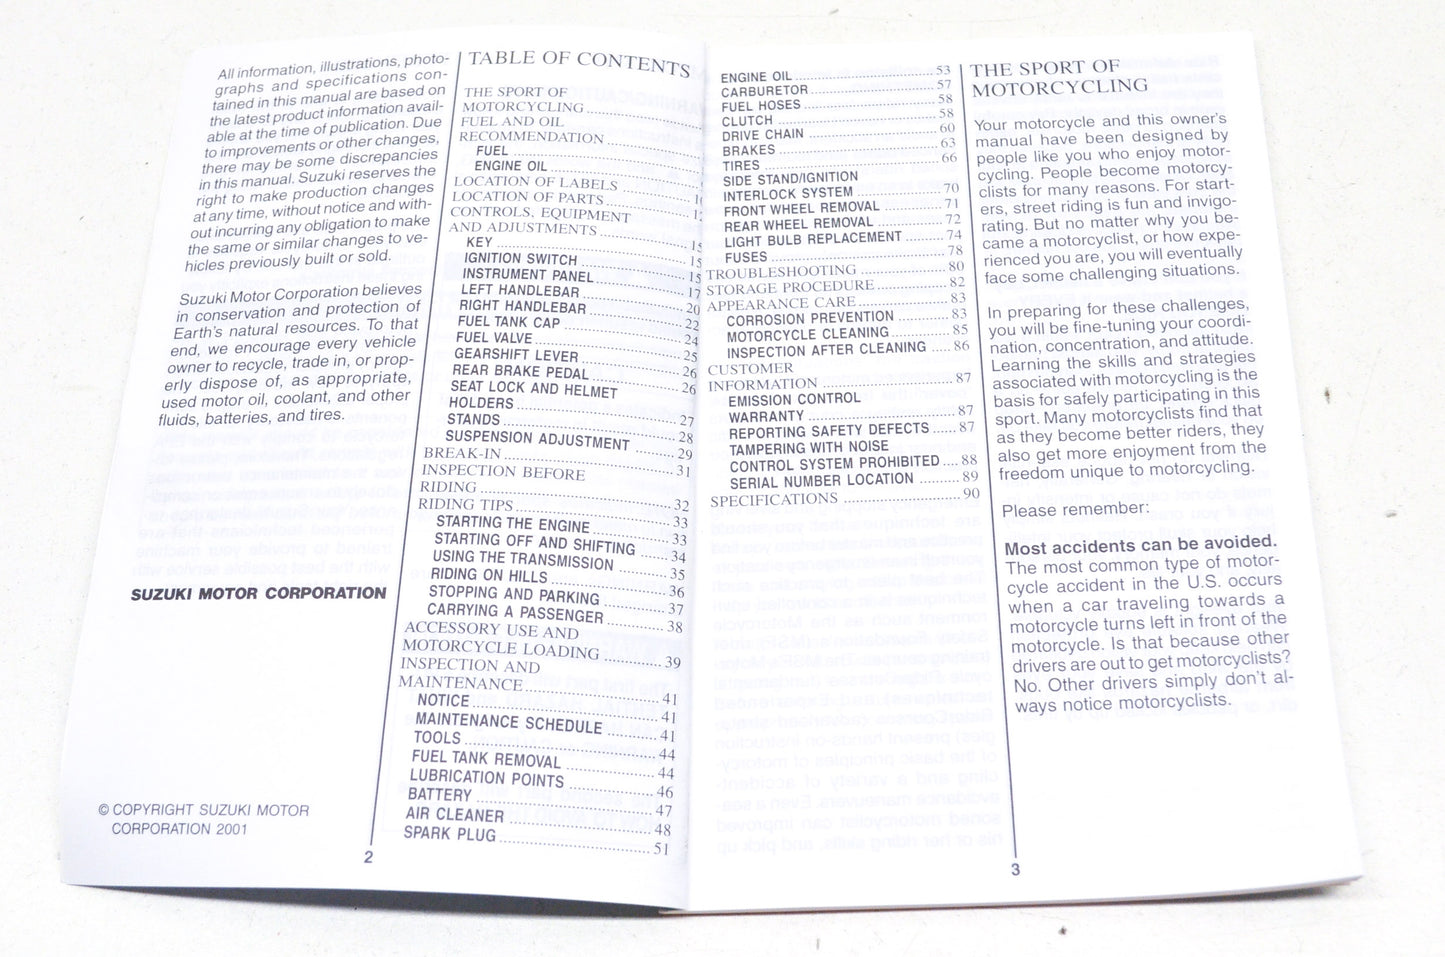 All information, illustrations, photo-
graphs and specifications con-
tained in this manual are based on
the latest product information avail-
able at the time of publication. Due
to improvements or other changes,
there may be some discrepancies
in this manual. Suzuki reserves the
right to make production changes
at any time, without notice and with-
out incurring any obligation to make
the same or similar changes to ve-
hicles previously built or sold.
Suzuki Motor Corporation believes
in conservation and protection of
Earth's natural resources. To that
end, we encourage every vehicle
owner to recycle, trade in, or prop-
erly dispose of, as appropriate,
used motor oil, coolant, and other
fluids, batteries, and tires.
SUZUKI MOTOR CORPORATION
© COPYRIGHT SUZUKI MOTOR
CORPORATION 2001
TABLE OF CONTENTS
THE SPORT OF
MOTORCYCLING
FUEL AND OIL
RECOMMENDATION
FUEL
ENGINE OIL
LOCATION OF LABELS
LOCATION OF PARTS
CONTROLS, EQUIPMENT
AND ADJUSTMENTS 15
KEY 15
IGNITION SWITCH 15
INSTRUMENT PANEL 17
LEFT HANDLEBAR 20
RIGHT HANDLEBAR 22
FUEL TANK CAP 24
FUEL VALVE 25
GEARSHIFT LEVER 26
REAR BRAKE PEDAL 26
SEAT LOCK AND HELMET
HOLDERS 27
STANDS 28
SUSPENSION ADJUSTMENT 29
BREAK-IN 31
INSPECTION BEFORE
RIDING 32
RIDING TIPS 33
STARTING THE ENGINE 33
STARTING OFF AND SHIFTING 34
USING THE TRANSMISSION 35
RIDING ON HILLS 36
STOPPING AND PARKING 37
CARRYING A PASSENGER 38
ACCESSORY USE AND
MOTORCYCLE LOADING 39
INSPECTION AND
MAINTENANCE 41
NOTICE 41
MAINTENANCE SCHEDULE 41
TOOLS 44
FUEL TANK REMOVAL 44
LUBRICATION POINTS 46
BATTERY 47
AIR CLEANER 48
SPARK PLUG 51
2
ENGINE OIL 53
CARBURETOR 57
FUEL HOSES 58
CLUTCH 58
DRIVE CHAIN 60
BRAKES 63
TIRES 66
SIDE STAND/IGNITION
INTERLOCK SYSTEM 70
FRONT WHEEL REMOVAL 71
REAR WHEEL REMOVAL 72
LIGHT BULB REPLACEMENT 74
FUSES 78
TROUBLESHOOTING 80
STORAGE PROCEDURE 82
APPEARANCE CARE 83
CORROSION PREVENTION 83
MOTORCYCLE CLEANING 85
INSPECTION AFTER CLEANING 86
CUSTOMER
INFORMATION 87
EMISSION CONTROL
WARRANTY 87
REPORTING SAFETY DEFECTS 87
TAMPERING WITH NOISE
CONTROL SYSTEM PROHIBITED 88
SERIAL NUMBER LOCATION 89
SPECIFICATIONS 90
THE SPORT OF
MOTORCYCLING
Your motorcycle and this owner's
manual have been designed by
people like you who enjoy motor-
cycling. People become motorcy-
clists for many reasons. For start-
ers, street riding is fun and invigo-
rating. But no matter why you be-
came a motorcyclist, or how expe-
rienced you are, you will eventually
face some challenging situations.
In preparing for these challenges,
you will be fine-tuning your coordi-
nation, concentration, and attitude.
Learning the skills and strategies
associated with motorcycling is the
basis for safely participating in this
sport. Many motorcyclists find that
as they become better riders, they
also get more enjoyment from the
freedom unique to motorcycling.
Please remember:
Most accidents can be avoided.
The most common type of motor-
cycle accident in the U.S. occurs
when a car traveling towards a
motorcycle turns left in front of the
motorcycle. Is that because other
drivers are out to get motorcyclists?
No. Other drivers simply don't al-
ways notice motorcyclists.
3